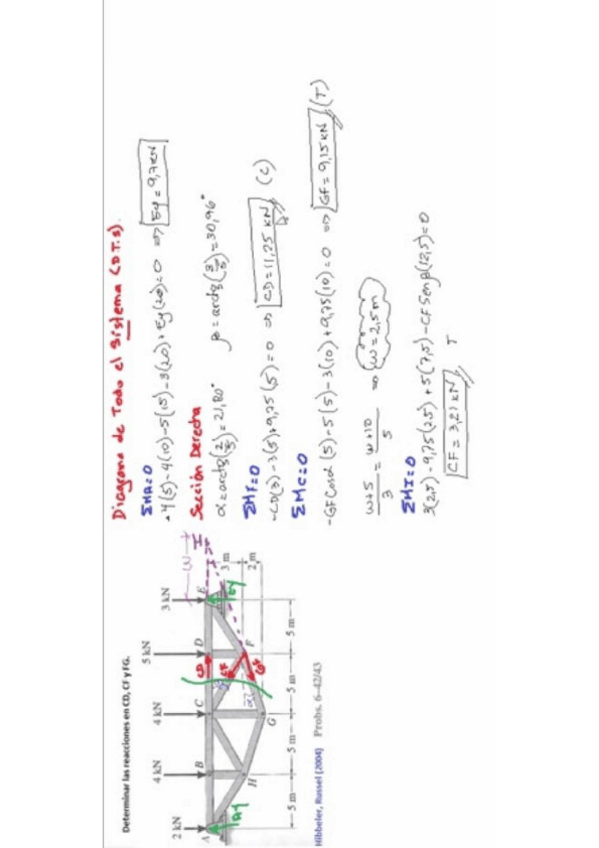 Determinar las reacciones en CD, CF y FG.
2 kN
4 kN
4 kN
5 kN
3 kN
W
A
B
C
D
E
I
Ay
Ey
CD
CF
GF
α
H
G
F
3 m
2 m
5 m
5 m
5 m
5 m
Hibbeler, Russel (2004) Probs. 6–42/43
Diagrama de Todo el Sistema (D.T.S).
ΣMA=0
-4(5)-4(10)-5(15)-3(20)+Ey(20)=0 ⇒ Ey = 9,75KN
Sección Derecha
α=arctg(2/5)=21,80° β=arctg(3/5)=30,96°
ΣMF=0
-CD(3)-3(5)+9,75(5)=0 ⇒ CD=11,25 KN (C)
ΣMC=0
-GFCosα(5)-5(5)-3(10)+9,75(10)=0 ⇒ GF=9,15KN (T)
W+5/3 = W+10/5 ⇒ W=2,5m
ΣMI=0
3(2,5)-9,75(2,5)+5(7,5)-CFSenβ(12,5)=0
CF=3,21 KN T